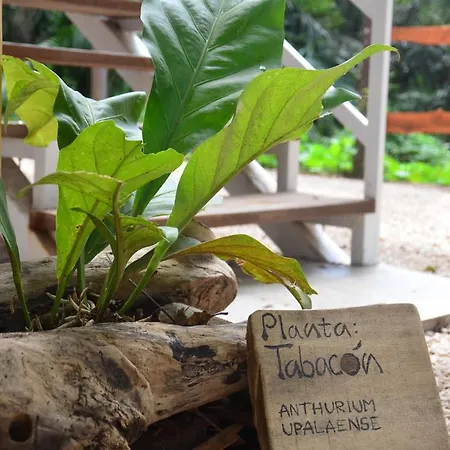 Planta:
Tabacón
ANTHURIUM
UPALAENSE